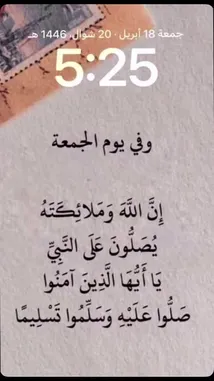 جمعة 18 أبريل · 20 شوال، 1446 هـ
5:25
وفي يوم الجمعة
إِنَّ اللَّهَ وَمَلَائِكَتَهُ
يُصَلُّونَ عَلَى النَّبِيِّ
يَا أَيُّهَا الَّذِينَ آمَنُوا
صَلُّوا عَلَيْهِ وَسَلِّمُوا تَسْلِيمًا